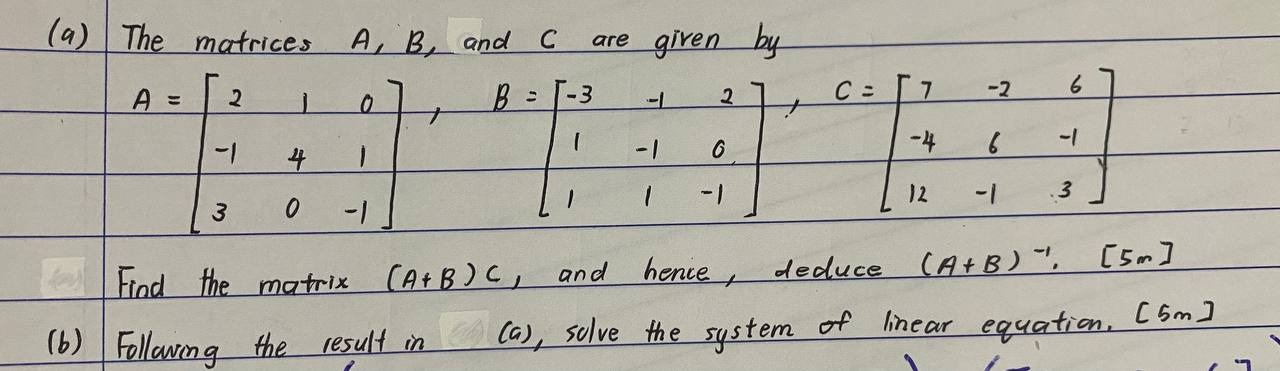 (a) The matrices A, B, and C are given by
A = [2 1 0], B = [-3 -1 2], C = [7 -2 6]
[-1 4 1] [1 -1 0] [-4 6 -1]
[3 0 -1] [1 1 -1] [12 -1 3]
Find the matrix (A+B)C, and hence, deduce (A+B)⁻¹. [5m]
(b) Following the result in (a), solve the system of linear equation. [5m]